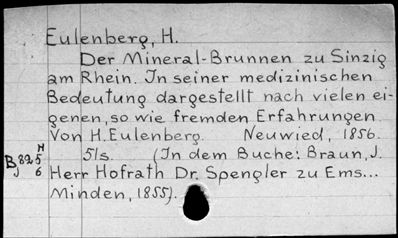 Eulenberg, H.
Der Mineral-Brunnen zu Sinzig
am Rhein. In seiner medizinischen
Bedeutung dargestellt nach vielen ei-
genen, so wie fremden Erfahrungen
Von H. Eulenberg. Neuwied, 1856.
51s. (In dem Buche: Braun, J.
Herr Hofrath Dr. Spengler zu Ems...
Minden, 1855).